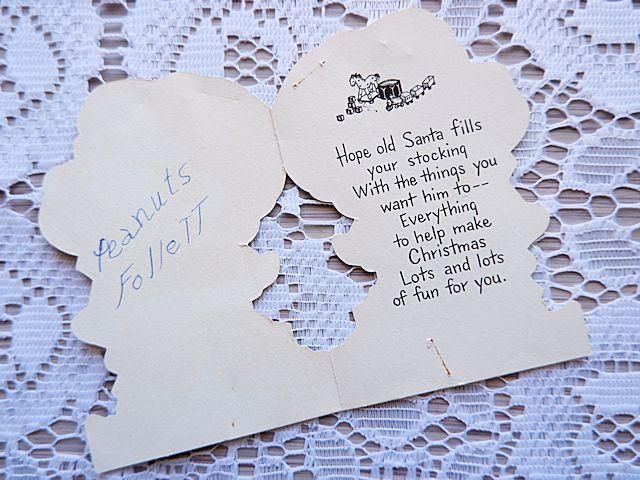 Peanuts
FolleTT
Hope old Santa fills
your stocking
With the things you
want him to--
Everything
to help make
Christmas
Lots and lots
of fun for you.